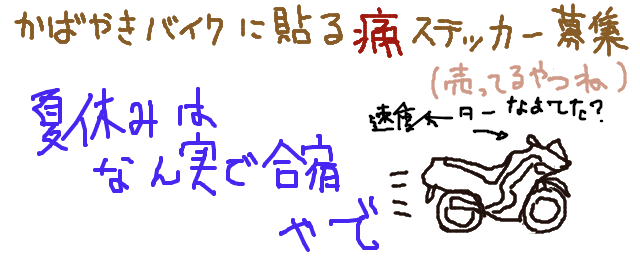 かばやきバイクに貼る痛ステッカー募集
(売ってるやつね)
夏休みは
なん実で合宿
やで
速度メーターなおてた?